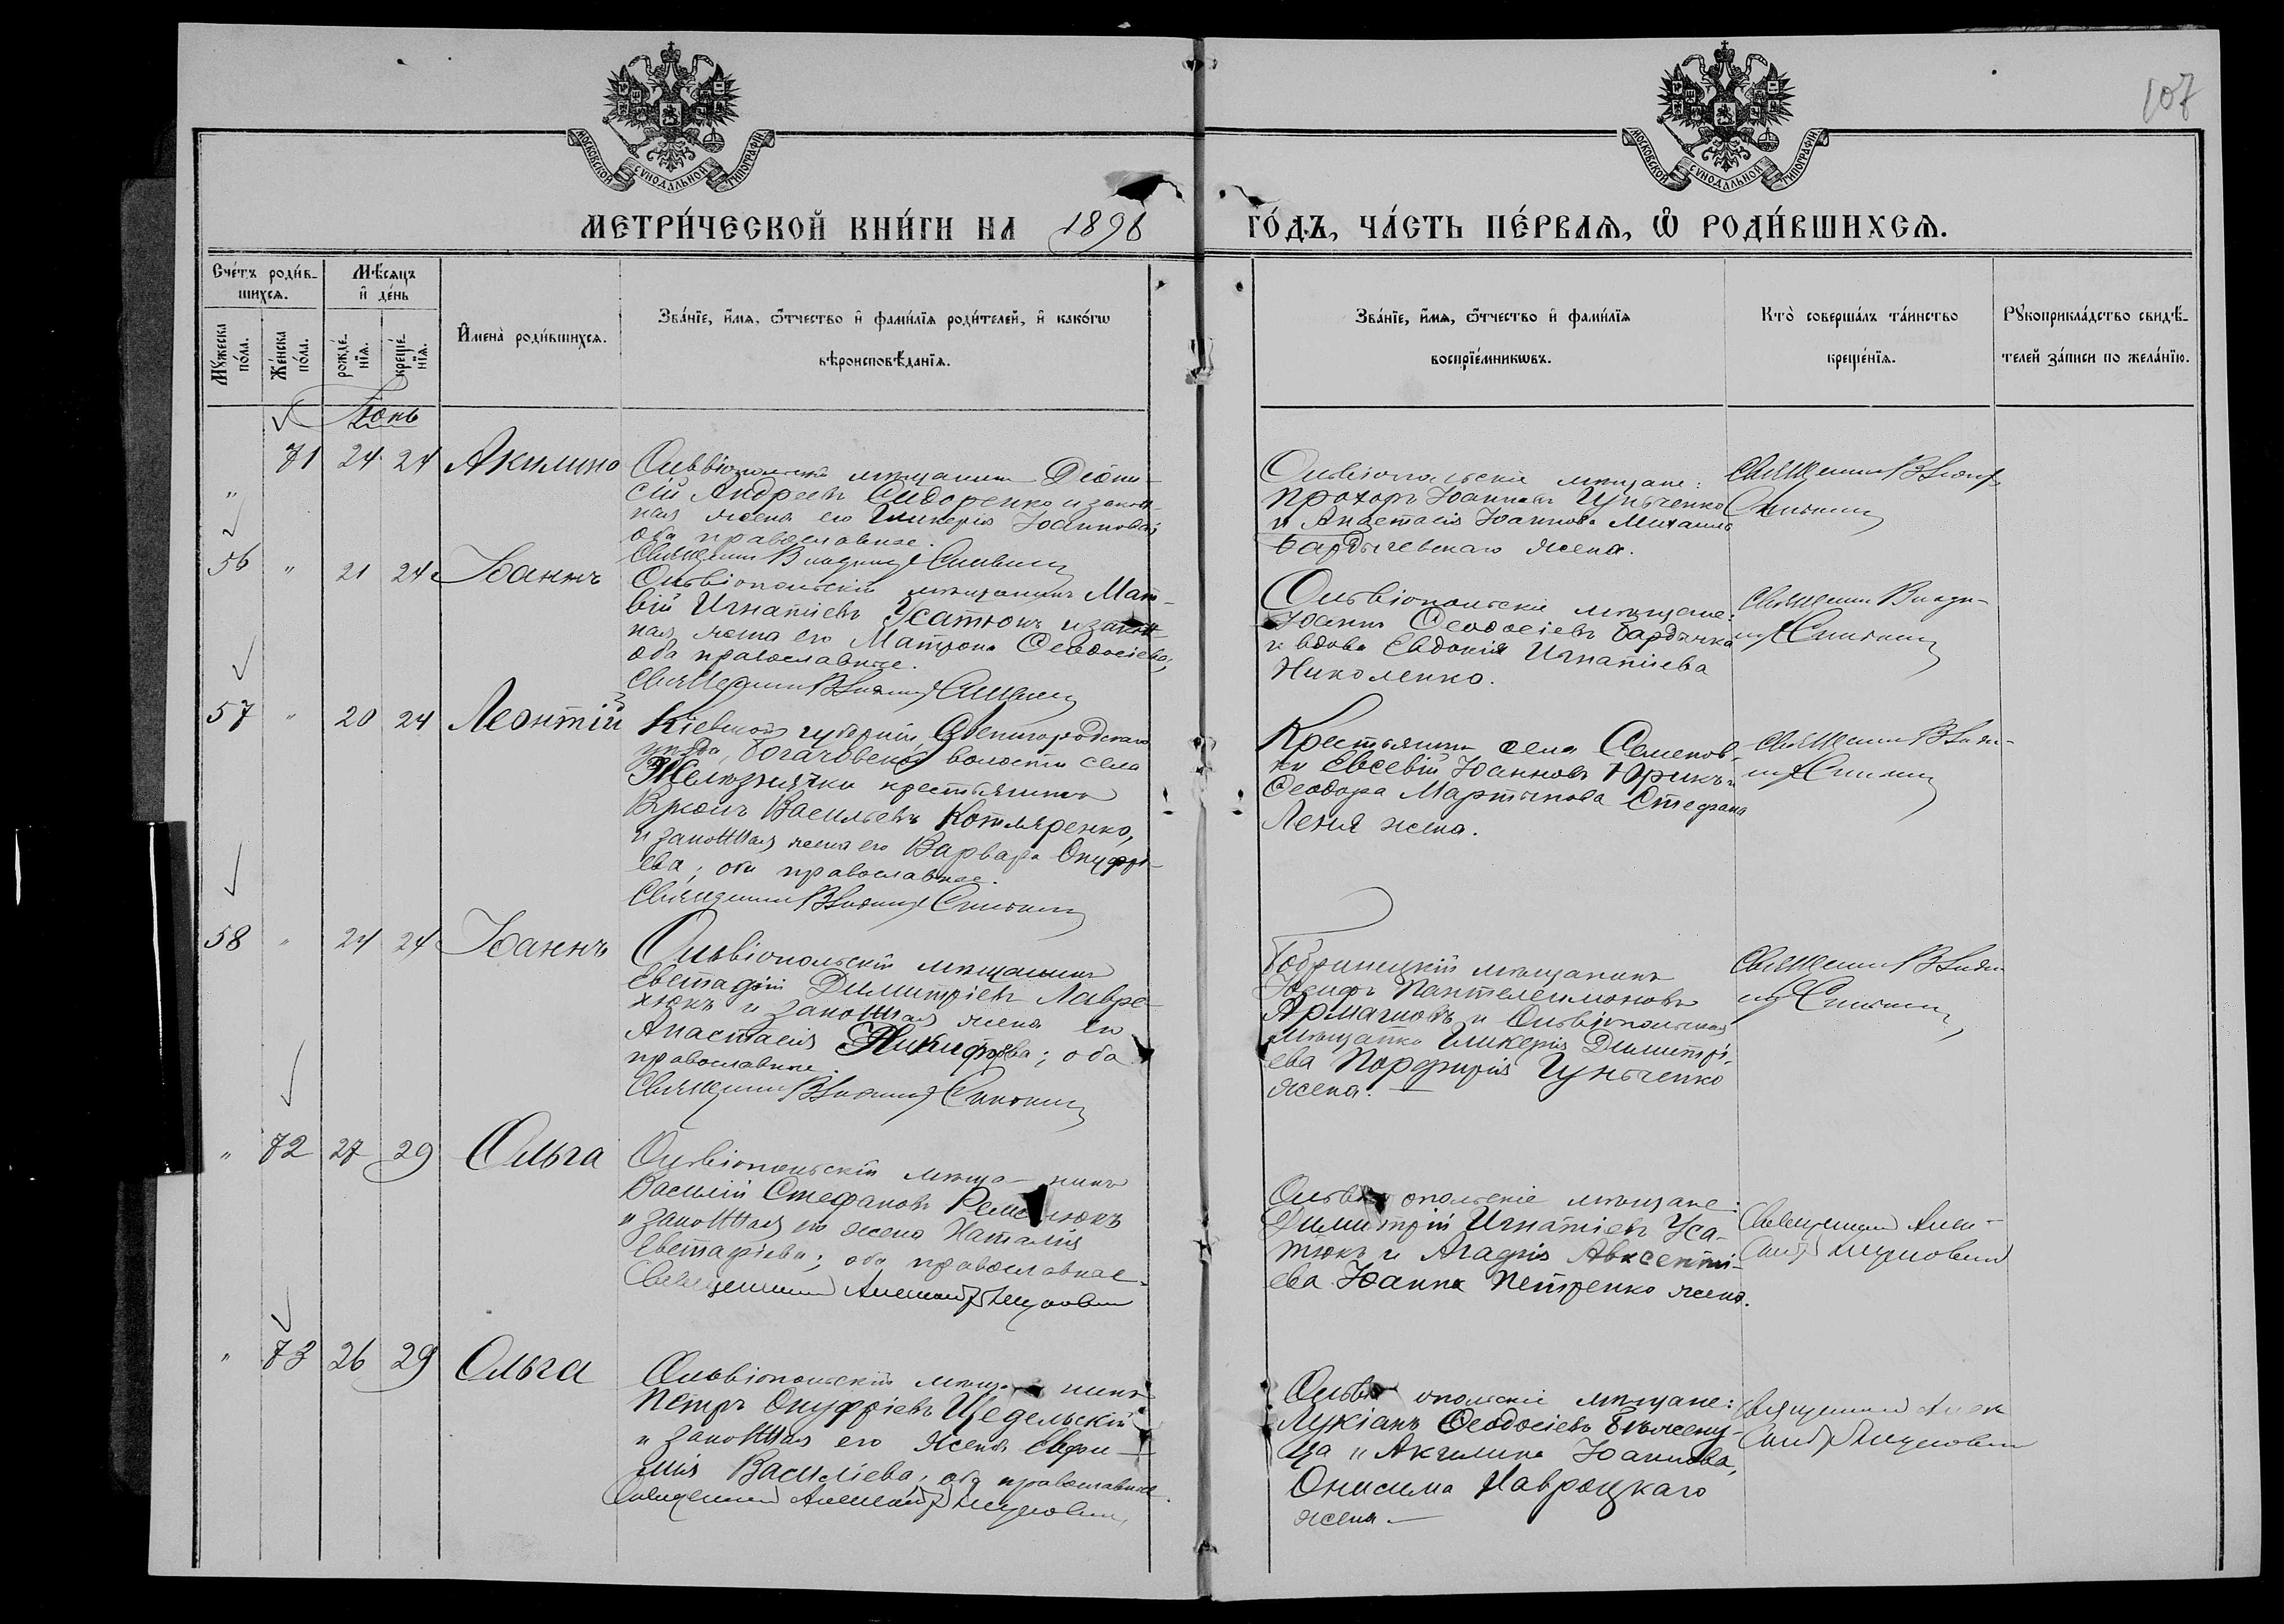 107
МОСКОВСКОЙ СѴНОДАЛЬНОЙ ТИПОГРАФІИ
МОСКОВСКОЙ СѴНОДАЛЬНОЙ ТИПОГРАФІИ
МЕТРИ́ЧЕСКОЙ КНИ́ГИ НА 1896 ГО́ДЪ, ЧА́СТЬ ПЕ́РВАѦ, Ѡ РОДИ́ВШИХСѦ.
Счетъ родив-
шихсѧ.
Мꙋжеска пола.
Женска пола.
Мѣсѧцъ
и день
рожде-
нїѧ.
креще-
нїѧ.
Имена родившихсѧ.
Званїе, имѧ, ѿчество и фамилїѧ родителей, и какогѡ
вѣроисповѣданїѧ.
Званїе, имѧ, ѿчество и фамилїѧ
воспрїемникѡвъ.
Кто совершалъ таинство
крещенїѧ.
Рꙋкоприкладство свидѣ-
телей записи по желанїю.
Іюнь
" 71 24 24 Акилина
Ольвіопольскій мѣщанинъ Діони-
сій Андреевъ Сидоренко и закон-
ная жена его Гликерія Іоаннова;
оба православные.
Священникъ
Ольвіопольскіе мѣщане:
Прохоръ Іоанновъ Цуныченко
и Анастасія Іоаннова Михаила
Бардычевскаго жена.
Священникъ
56 " 21 24 Іоаннъ
Ольвіопольскій мѣщанинъ Мат-
вій Игнатіевъ Усатюкъ и закон-
ная жена его Матрона Ѳеодосіева;
оба православные.
Священникъ
Ольвіопольскіе мѣщане:
Іоаннъ Ѳеодосіевъ
и вдова Евдокія Игнатіева
Николенко.
Священникъ Влади-
57 " 20 24 Леонтій
Кіевской губерніи, Звенигородскаго
уѣзда, Богачовской волости села
крестьянинъ
Васильевъ Котляренко,
и законная жена его Варвара Онуфрі-
ева; оба православные.
Священникъ
Крестьянинъ села Семенов-
ки Евсевій Іоанновъ Юрикъ и
Ѳеодора Мартынова Стефана
жена.
Священникъ
58 " 24 24 Іоаннъ
Ольвіопольскій мѣщанинъ
Евстафій Димитріевъ Лавре-
нюкъ и законная жена его
Анастасія Никифорова; оба
православные.
Священникъ
Бобринецкій мѣщанинъ
Іосифъ Пантелеимоновъ
и Ольвіопольская
мѣщанка Гликерія Димитрі-
ева Порфирія Цуныченко
жена.
Священникъ
" 72 27 29 Ольга
Ольвіопольскій мѣща-нинъ
Василій Стефановъ
и законная его жена Наталія
Евстафіева; оба православные.
Священникъ
Ольвіопольскіе мѣщане:
Димитрій Игнатіевъ Уса-
тюкъ и Агафія Авксенті-
ева Іоанна Петренко жена.
Священникъ Алек-
" 73 26 29 Ольга
Ольвіопольскій мѣщанинъ
Петръ Онуфріевъ Щедельскій
и законная его жена Евфи-
мія Василіева, оба православные.
Священникъ
Ольвіопольскіе мѣщане:
Лукіанъ Ѳеодосіевъ
и Акилина Іоаннова,
Онисима Навроцкаго
жена.
Священникъ Алек